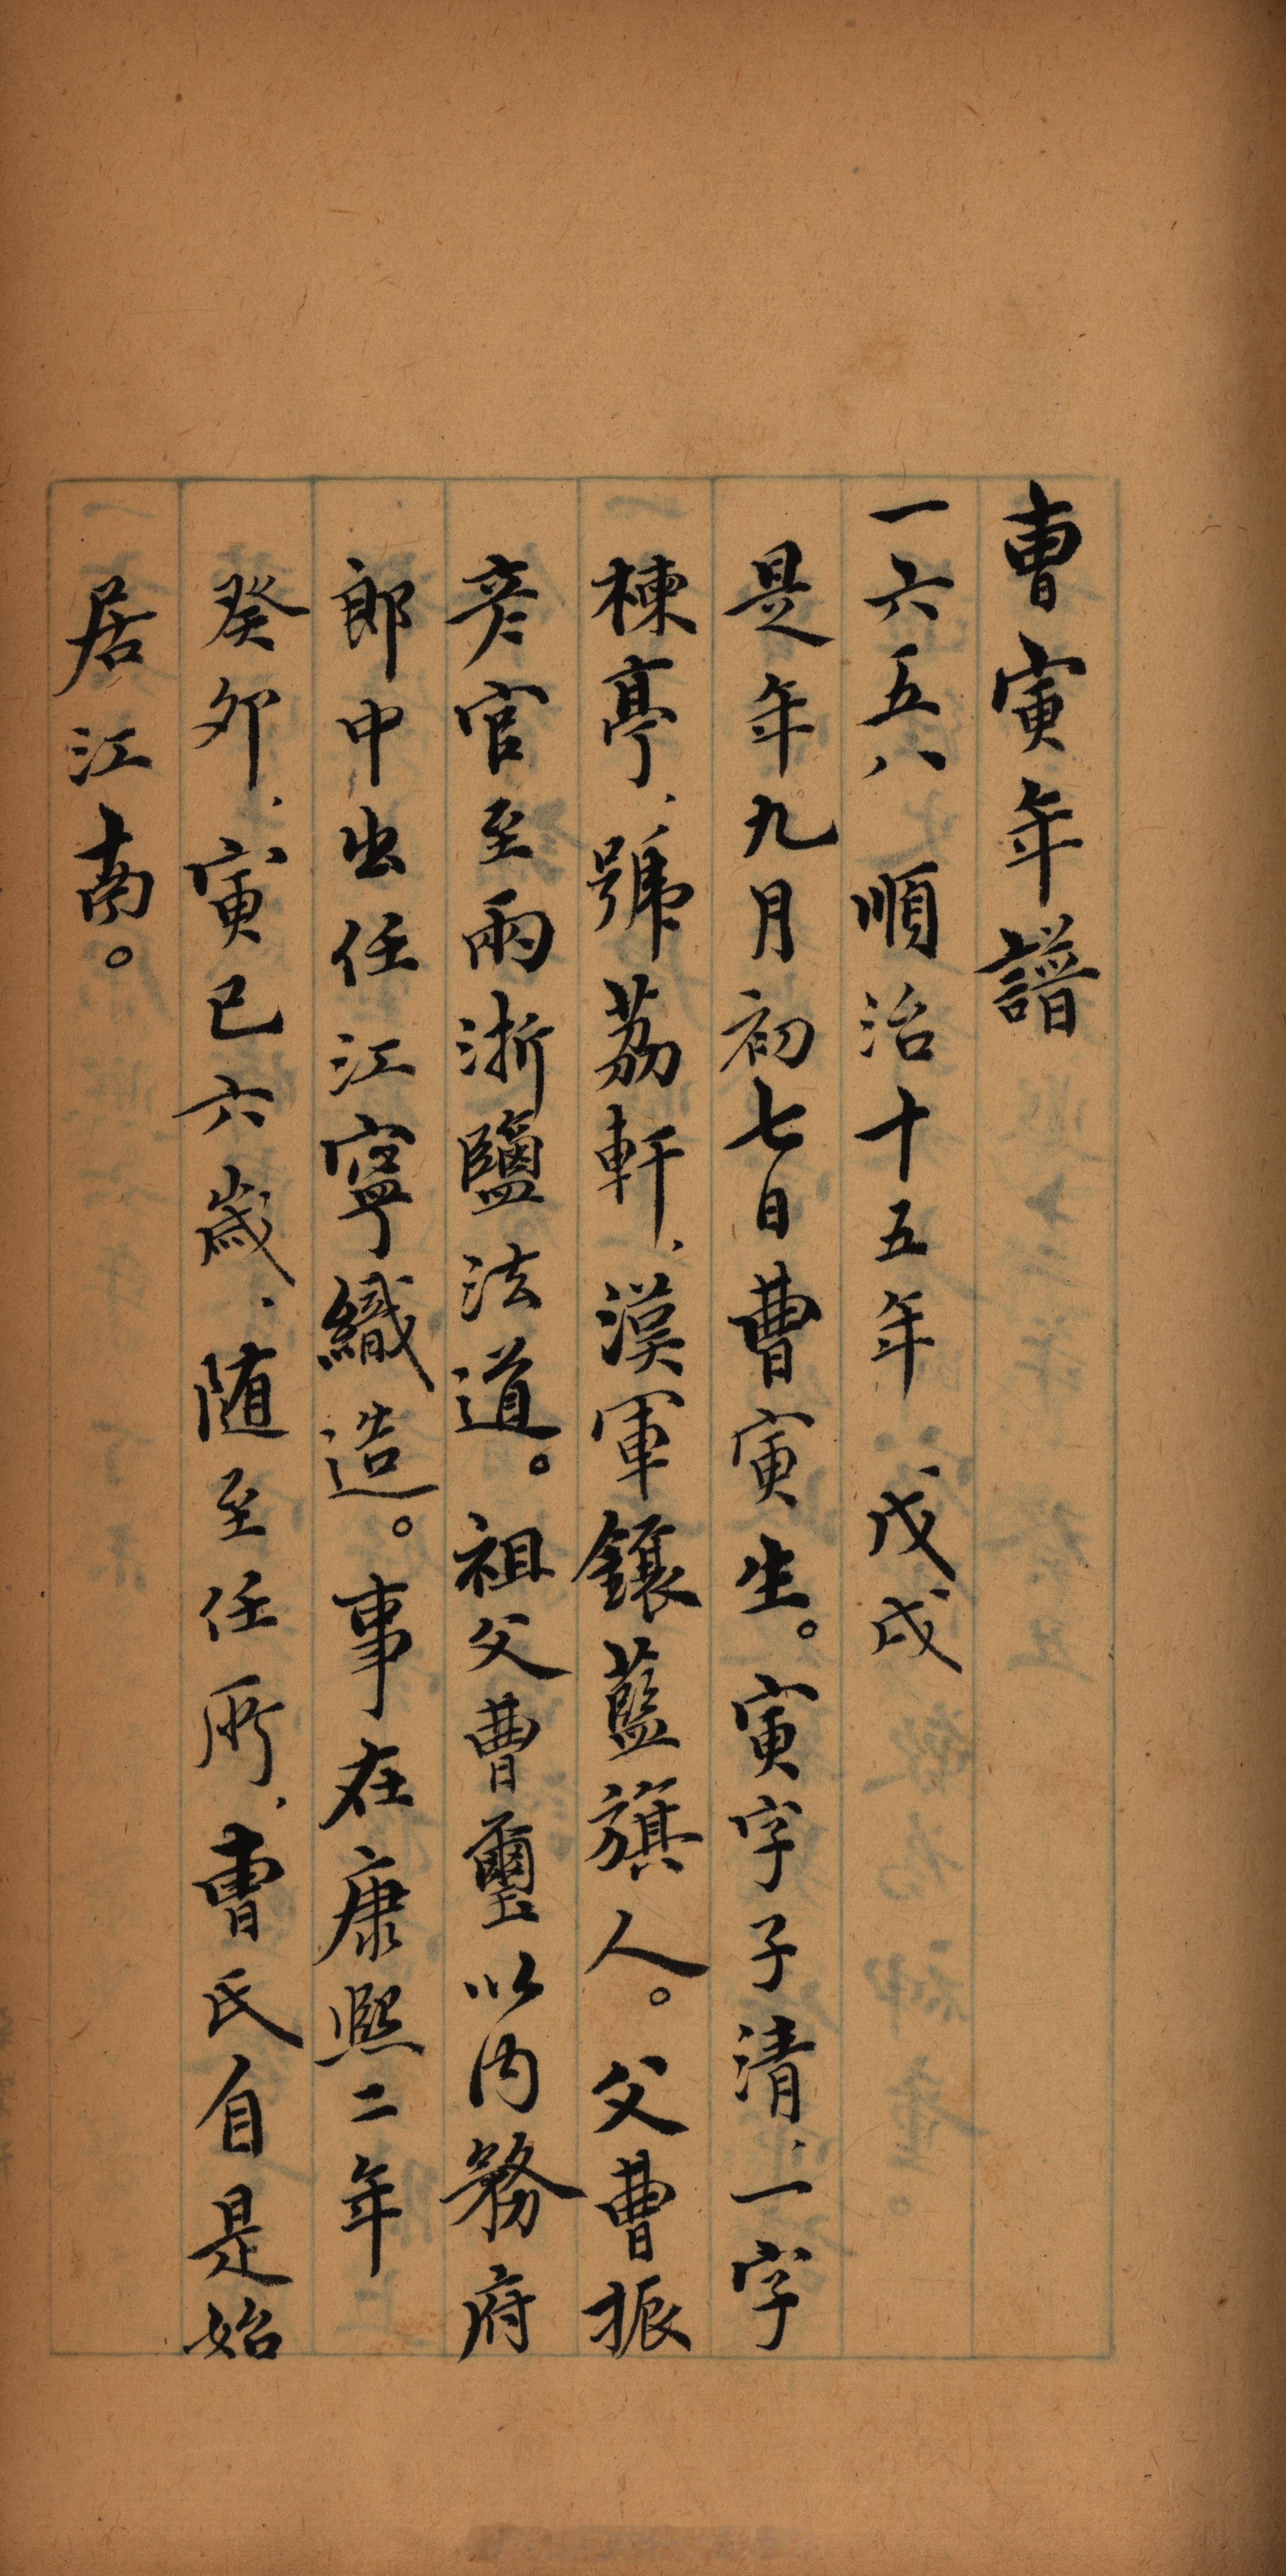 曹寅年譜
一六五八 順治十五年 戊戌
是年九月初七日曹寅生。寅字子清、一字
楝亭、號荔軒、漢軍鑲藍旗人。父曹振
彥官至兩浙鹽法道。祖父曹璽以內務府
郎中出任江寧織造。事在康熙二年
癸卯、寅已六歲、随至任所、曹氏自是始
居江南。